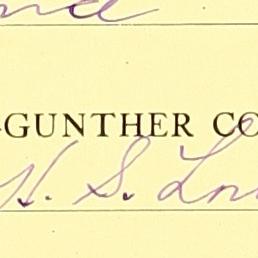 -GUNTHER CO
H. S. Lon